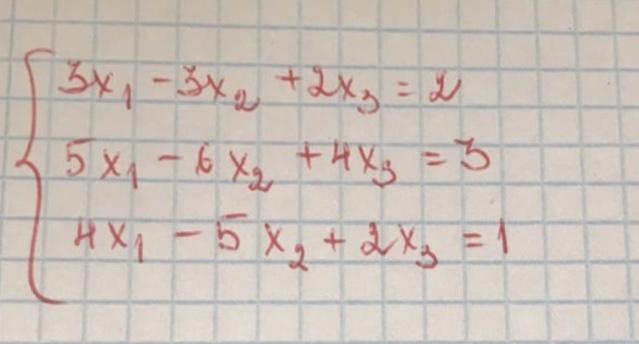 3x₁ - 3x₂ + 2x₃ = 2
5x₁ - 6x₂ + 4x₃ = 3
4x₁ - 5x₂ + 2x₃ = 1